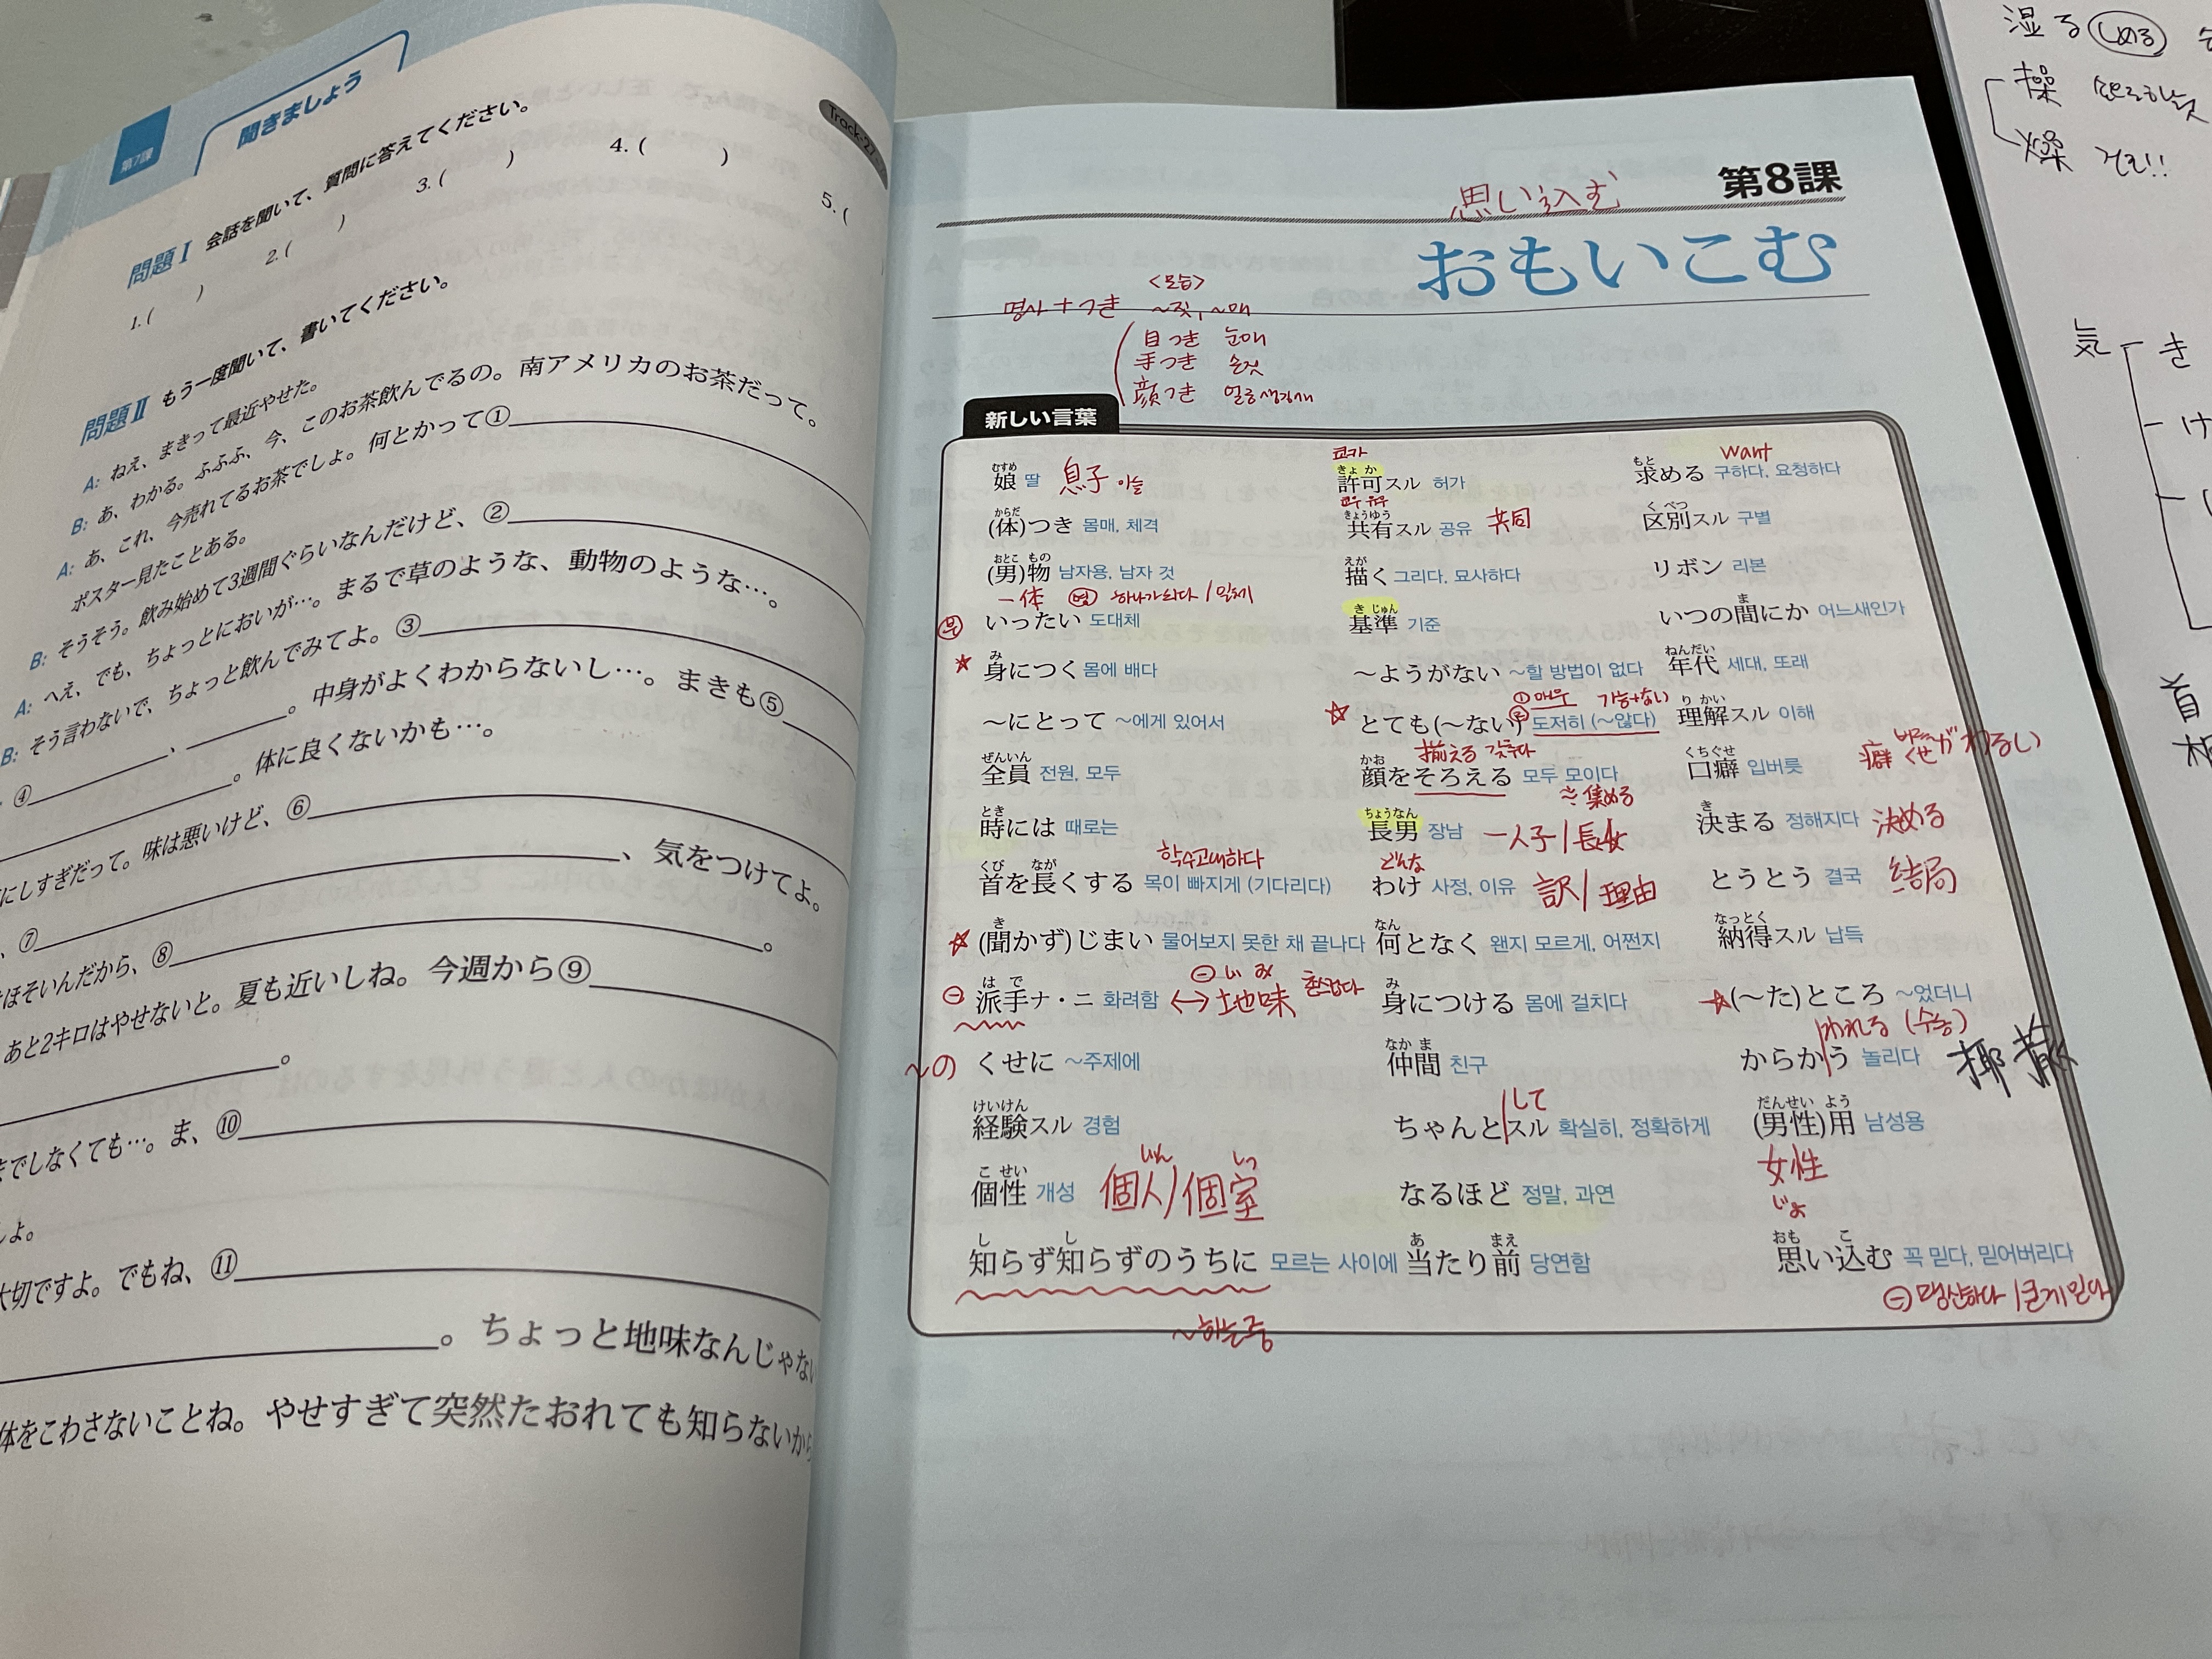 第7課
聞きましょう
Track-27
問題Ⅰ 会話を聞いて、質問に答えてください。
1. ( ) 2. ( ) 3. ( ) 4. ( ) 5. (
問題Ⅱ もう一度聞いて、書いてください。
A: ねえ、まきって最近やせた。
B: あ、わかる。ふふふ、今、このお茶飲んでるの。南アメリカのお茶だって。
A: あ、これ、今売れてるお茶でしょ。何とかって①
ポスター見たことある。
B: そうそう。飲み始めて3週間ぐらいなんだけど、②
A: へえ、でも、ちょっとにおいが…。まるで草のような、動物のような…。
B: そう言わないで、ちょっと飲んでみてよ。③
④ 、 。中身がよくわからないし…。まきも⑤
。体に良くないかも…。
にしすぎだって。味は悪いけど、⑥
、⑦ 、気をつけてよ。
ほそいんだから、⑧ 。
あと2キロはやせないと。夏も近いしね。今週から⑨
。
までしなくても…。ま、⑩
しよ。
大切ですよ。でもね、⑪
。ちょっと地味なんじゃな
体をこわさないことね。やせすぎて突然たおれても知らないか
第8課
思い込む
おもいこむ
<모습>
명사 + つき ~짓, ~매
目つき 눈매
手つき 손짓
顔つき 얼굴생김새
新しい言葉
むすめ
娘 딸 息子 아들
からだ
(体)つき 몸매, 체격
おとこ もの
(男)物 남자용, 남자 것
一体 하나가되다 / 일체
いったい 도대체
み
身につく 몸에 배다
~にとって ~에게 있어서
ぜんいん
全員 전원, 모두
とき
時には 때로는
학수고대하다
くび なが
首を長くする 목이 빠지게 (기다리다)
き
(聞かず)じまい 물어보지 못한 채 끝나다
はで
派手ナ・ニ 화려함 ↔ 地味
~の くせに ~주제에
けいけん
経験スル 경험
こせい
個性 개성 個人 / 個室
し し
知らず知らずのうちに 모르는 사이에
~하는중
쿄카
きょか
許可スル 허가
きょうゆう
共有スル 공유 共同
えが
描く 그리다, 묘사하다
きじゅん
基準 기준
~ようがない ~할 방법이 없다
①매우 가능+ない
とても(~ない) ②도저히 (~않다)
揃える 갖추다
かお
顔をそろえる 모두 모이다
≒ 集める
ちょうなん
長男 장남 一人子 / 長女
どんな
わけ 사정, 이유 訳 / 理由
なん
何となく 왠지 모르게, 어쩐지
み
身につける 몸에 걸치다
なかま
仲間 친구
して
ちゃんとスル 확실히, 정확하게
なるほど 정말, 과연
あ まえ
当たり前 당연함
want
もと
求める 구하다, 요청하다
くべつ
区別スル 구별
リボン 리본
ま
いつの間にか 어느새인가
ねんだい
年代 세대, 또래
りかい
理解スル 이해
くちぐせ
口癖 입버릇 癖 くせがわるい
き
決まる 정해지다 決める
とうとう 결국 結局
なっとく
納得スル 납득
(~た)ところ ~었더니
われる (수동)
からかう 놀리다 揶揄
だんせい よう
(男性)用 남성용
女性
じょ
おも こ
思い込む 꼭 믿다, 믿어버리다
⊖ 맹신하다 / 굳게 믿다
湿る しめる
操
燥 건조!!
気 き
け
首